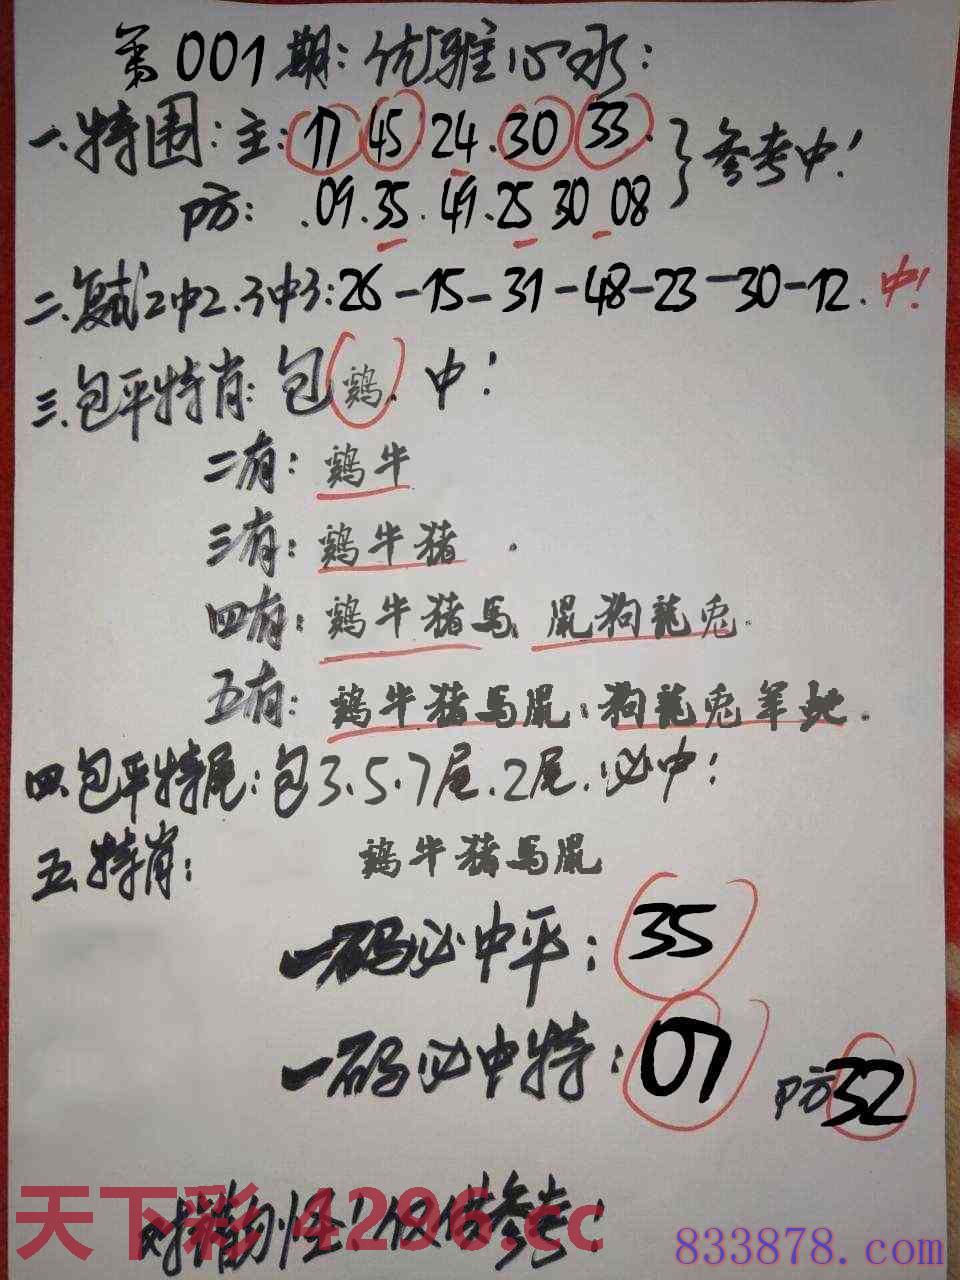 第001期:优雅心水:
一.特围:主:17 45 24.30 33. }参考中!
防: .09.35.49.25 30 08
二.复试2中2.3中3:26-15-31-48-23-30-12.中!
三.包平特肖:包鷄.中!
二有:鷄牛
三有:鷄牛猪.
四有:鷄牛猪馬 鼠狗龍兔.
五有:鷄牛猪馬鼠:狗龍兔羊虵.
四.包平特尾:包3.5.7尾.2尾.必中!
五.特肖: 鷄牛猪馬鼠
一码必中平:35
一码必中特:07 防32
天下彩 4296.cc
仅供参考!
833878.com